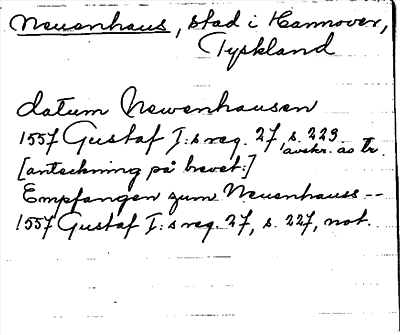 Neuenhaus, stad i Hannover,
Tyskland
datum Newenhausen
1557 Gustaf I:s reg. 27, s. 229
avskr. ao tr.
[anteckning på brevet:]
Empfangen zum Neuenhauss --
1557 Gustaf I:s reg. 27, s. 227, not.